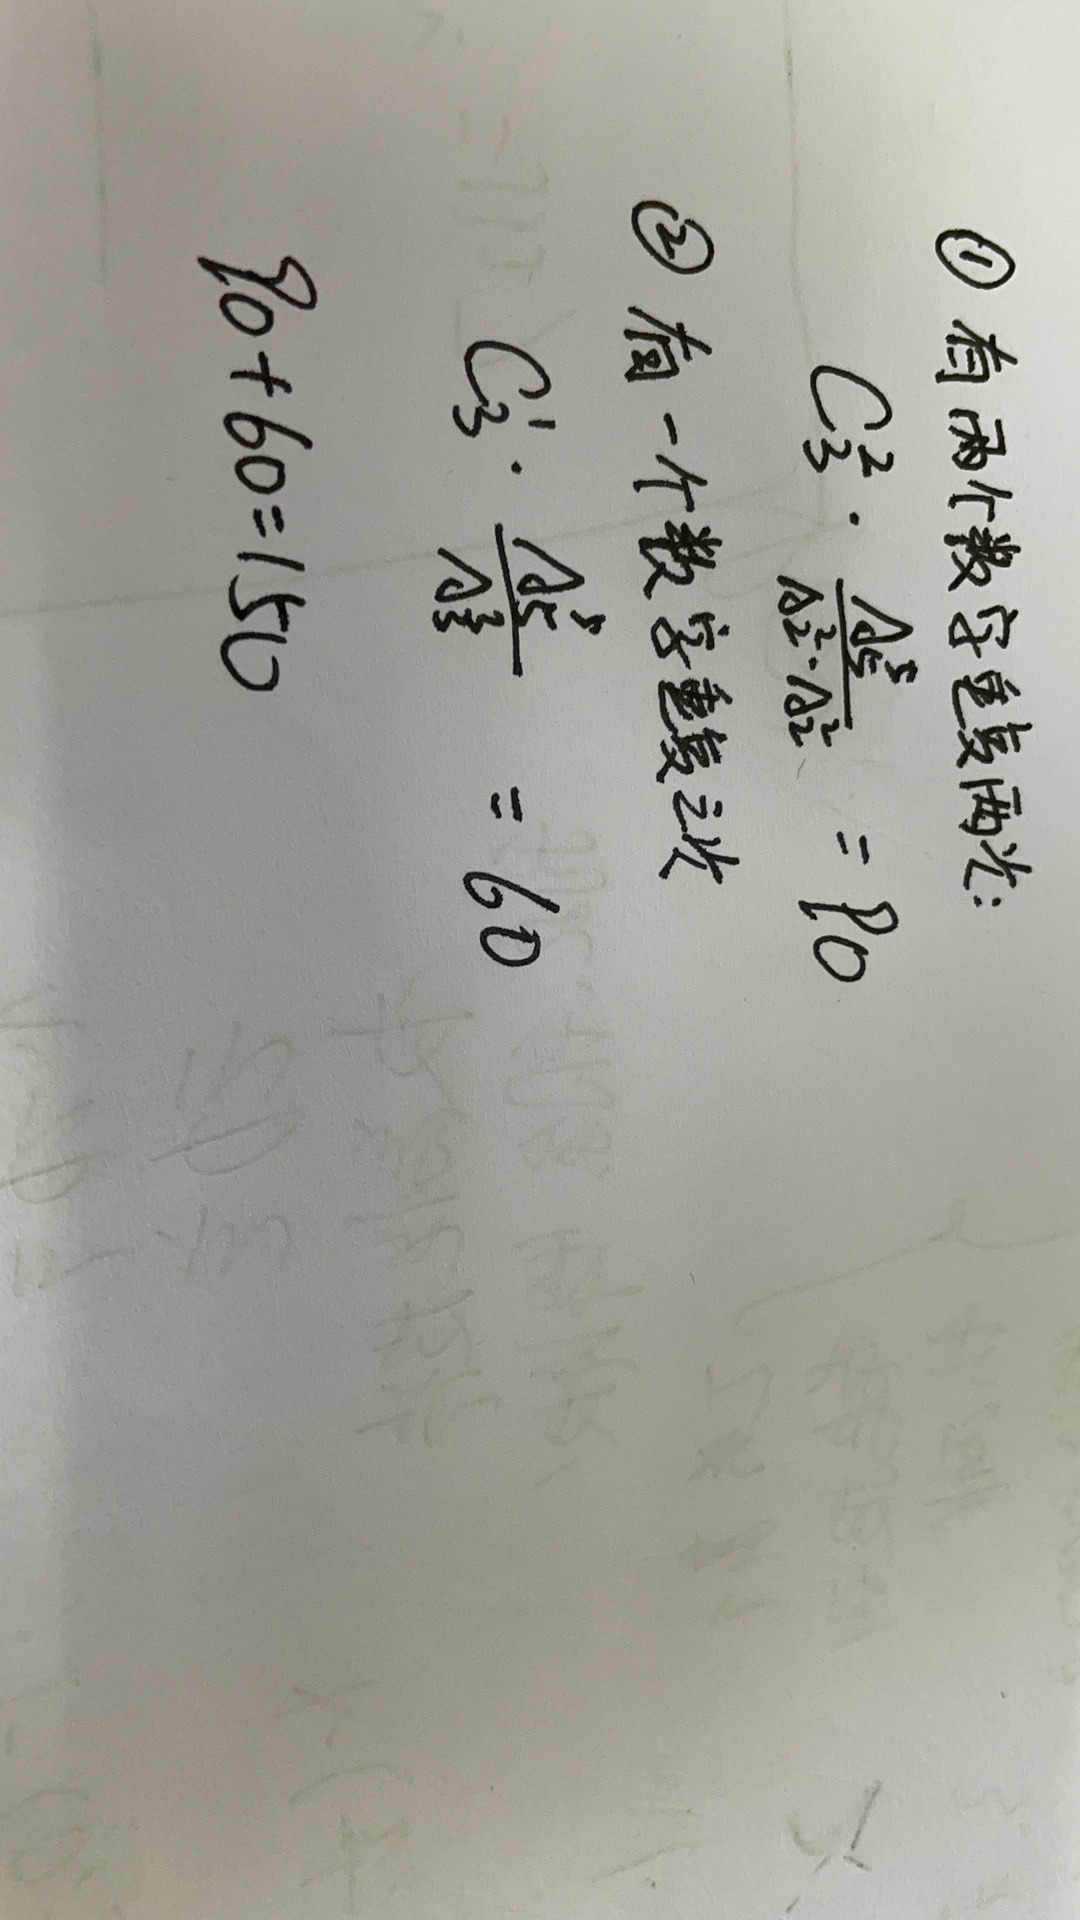 ① 有两个数字重复两次:
C₃² · A₅⁵/(A₂²·A₂²) = 90
② 有一个数字重复三次
C₃¹ · A₅⁵/A₃³ = 60
90+60=150